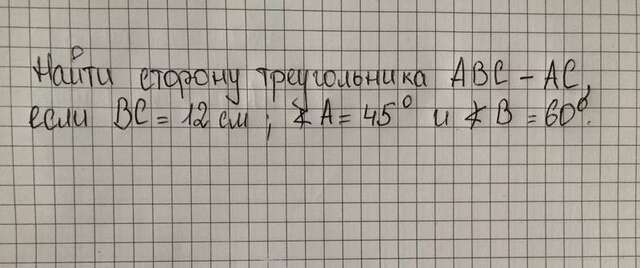 Найти сторону треугольника ABC – AC,
если BC = 12 см; ∠A = 45° и ∠B = 60°.